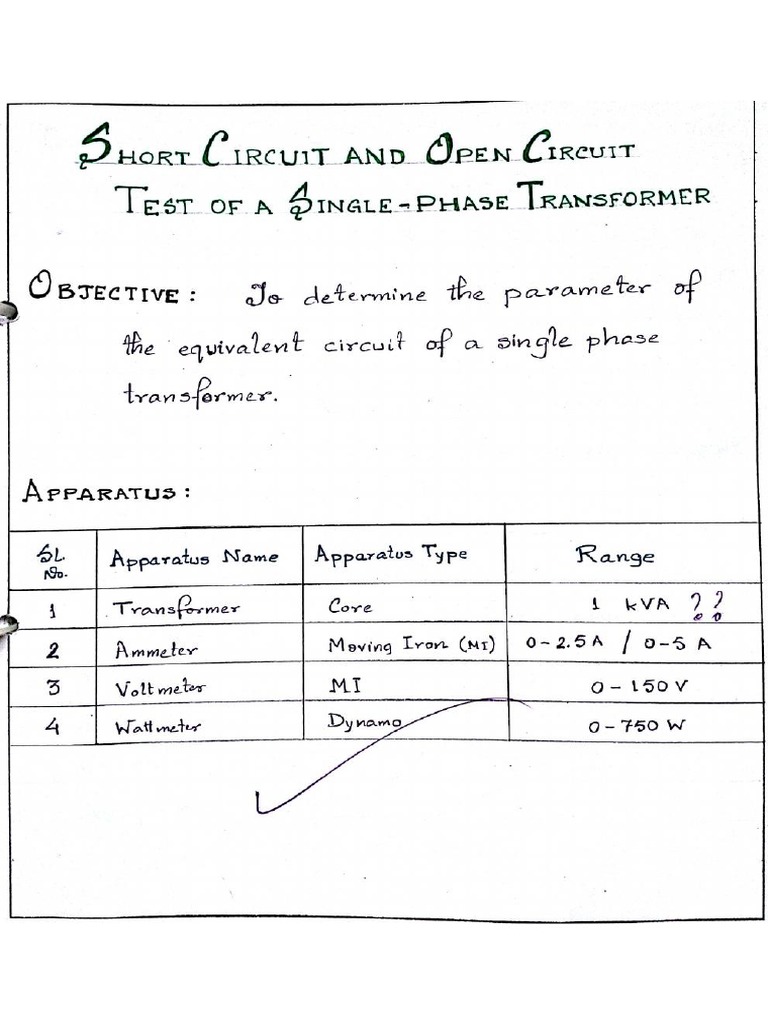 SHORT CIRCUIT AND OPEN CIRCUIT
TEST OF A SINGLE-PHASE TRANSFORMER
OBJECTIVE : To determine the parameter of
the equivalent circuit of a single phase
transformer.
APPARATUS :
SL. No. Apparatus Name Apparatus Type Range
1 Transformer Core 1 kVA ??
2 Ammeter Moving Iron (MI) 0-2.5 A / 0-5 A
3 Voltmeter MI 0-150 V
4 Wattmeter Dynamo 0-750 W